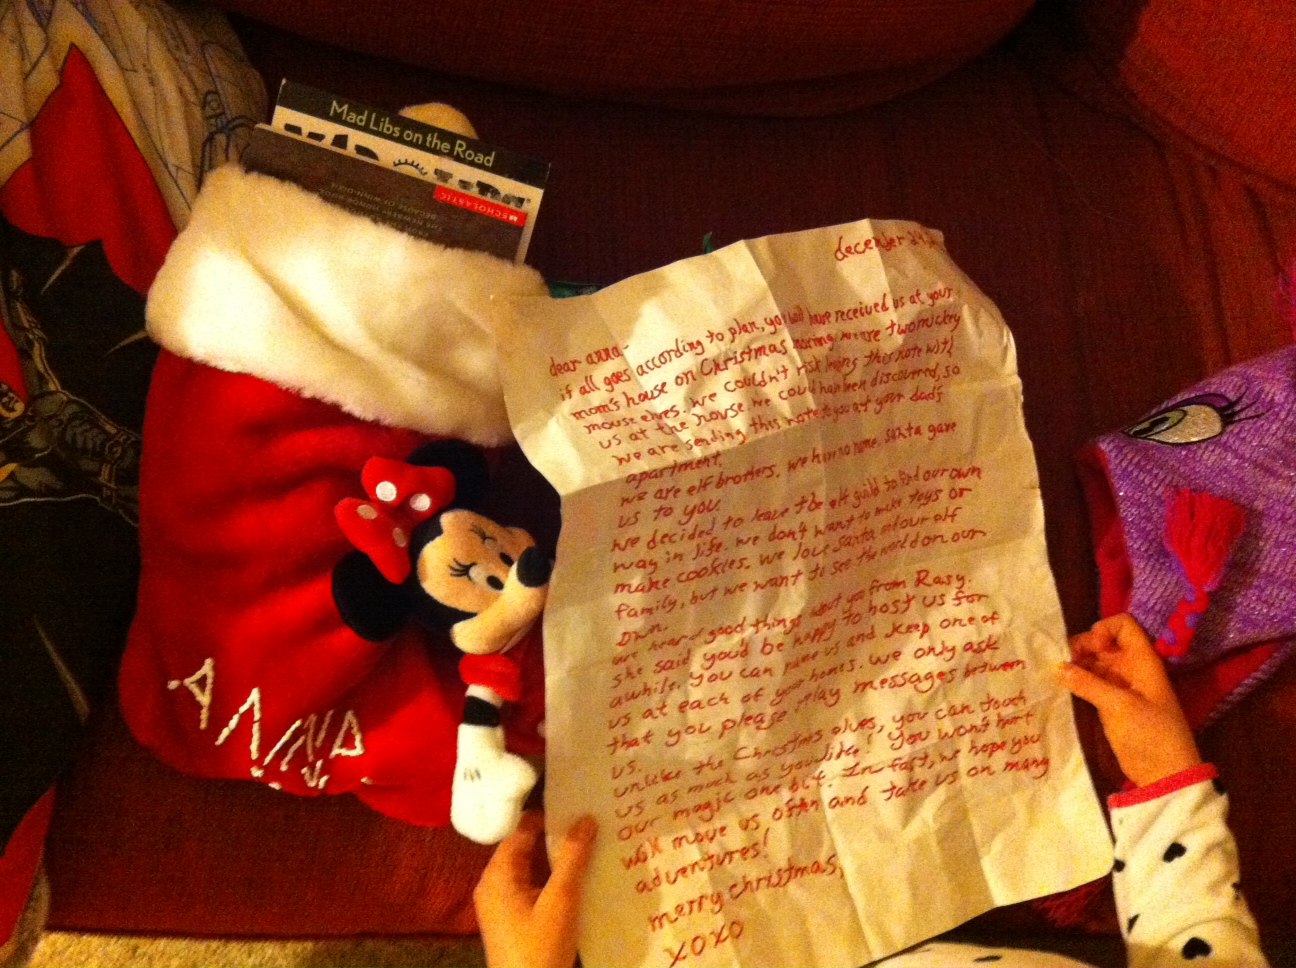 Mad Libs on the Road
MAD LIBS
SCHOLASTIC
BECAUSE OF WINN-DIXIE
ANNA
december 24th
dear anna-
if all goes according to plan, you will have received us at your
mom's house on Christmas morning. we are two mickey
mouse elves. we couldn't risk leaving this note with
us at the house. we could have been discovered, so
we are sending this note to you at your dad's
apartment.
we are elf brothers. we have no name. santa gave
us to you.
we decided to leave the elf guild to find our own
way in life. we don't want to make toys or
make cookies. we love santa and our elf
family, but we want to see the world on our
own.
we hear good things about you from Rasy.
she said you'd be happy to host us for
awhile. you can name us and keep one of
us at each of your homes. we only ask
that you please relay messages between
us.
unlike the Christmas elves, you can touch
us as much as you like! you won't hurt
our magic one bit. In fact, we hope you
will move us often and take us on many
adventures!
merry christmas,
xoxo